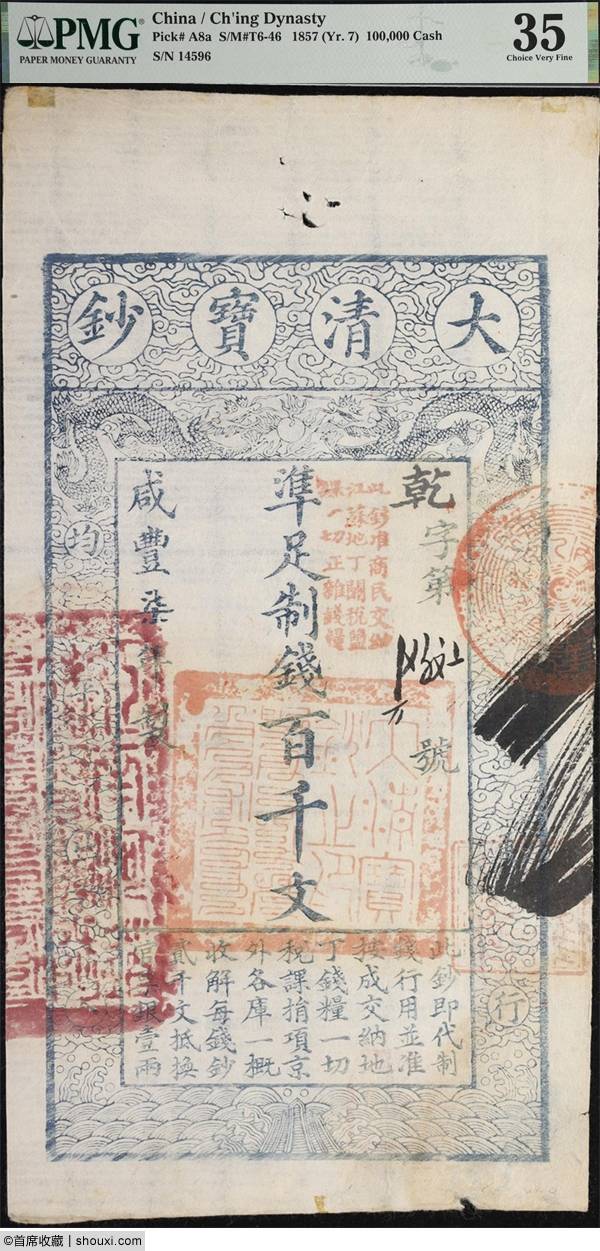 PMG
PAPER MONEY GUARANTY
China / Ch'ing Dynasty
Pick# A8a S/M#T6-46 1857 (Yr. 7) 100,000 Cash
S/N 14596
35
Choice Very Fine
大清寶鈔
乾字第
號
此鈔准商民交納
江蘇地丁關稅鹽
課一切正雜錢糧
準足制錢百千文
咸豐柒年製
均
行
此鈔即代制
錢行用並准
按成交納地
丁錢糧一切
稅課捐項京
外各庫一概
收解每錢鈔
貳千文抵換
官票銀壹兩
©首席收藏 | shouxi.com